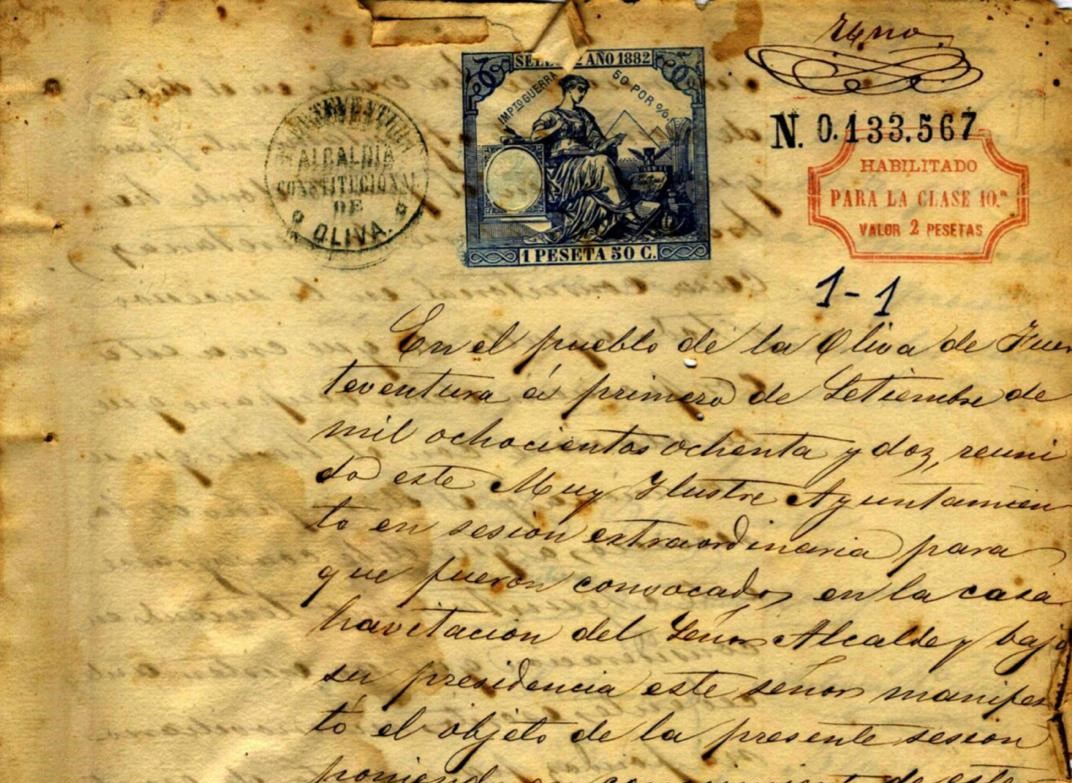 SELLO 12º AÑO 1882
IMPTO GUERRA 50 POR %
1 PESETA 50 C.
FUERTEVENTURA
ALCALDIA
CONSTITUCIONAL
DE
OLIVA.
N. 0.133.567
HABILITADO
PARA LA CLASE 10.ª
VALOR 2 PESETAS
1-1
En el pueblo de la Oliva de Fuer
teventura á primero de Setiembre de
mil ochocientos ochenta y dos, reuni
do este Muy Ilustre Ayuntamien
to en sesion extraordinaria para
que fueron convocados en la casa
havitacion del Señor Alcalde y bajo
su presidencia este señor manifes
tó el objeto de la presente sesion
poniendo en conocimiento de